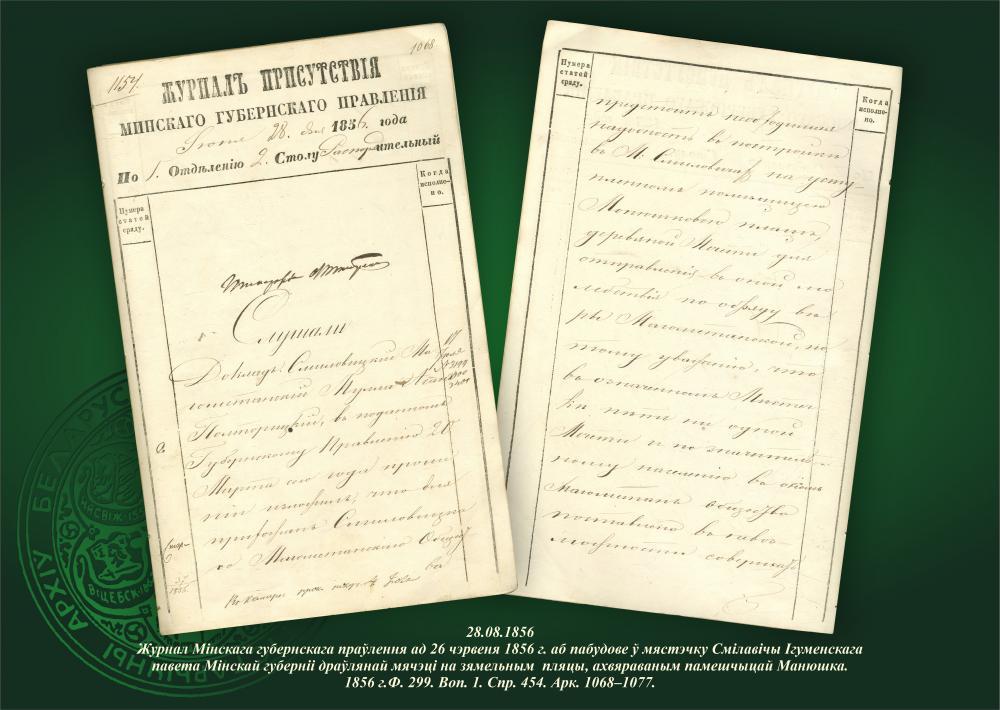 1157.
1068
ЖУРНАЛЪ ПРИСУТСТВІЯ
МИНСКАГО ГУБЕРНСКАГО ПРАВЛЕНІЯ
28. дня 1856 года
По 1. Отдѣленію 2. Столу Распорядительный
Нумера статей сряду.
Когда исполнено.
Слушали
Докладъ: Смиловицкій Ма-
гометанскій Мулла
Полторжицкій, въ поданномъ
Губернскому Правленію 20
Марта сего года проше-
ніи изложилъ, что для
прихожанъ Смиловицка-
го Магометанскаго Общест-
ва
Нумера статей сряду.
Когда исполнено.
предстоитъ необходимая
надобность въ постройкѣ
въ М. Смиловичахъ на усту-
пленномъ помѣщицею
Монюшковою плацѣ,
деревянной Мечети для
отправленія въ оной мо-
лебствія по обряду вѣ-
ры Магометанской, по
тому уваженію, что
въ означенномъ Мѣстеч-
кѣ нѣтъ ни одной
Мечети и по значитель-
ному населенію въ ономъ
Магометанъ общество
поставлено въ невоз-
можности совершать
АРХІЎ БЕЛАРУС
28.08.1856
Журнал Мінскага губернскага праўлення ад 26 чэрвеня 1856 г. аб пабудове ў мястэчку Смілавічы Ігуменскага
павета Мінскай губерніі драўлянай мячэці на зямельным пляцы, ахвяраваным памешчыцай Манюшка.
1856 г.Ф. 299. Воп. 1. Спр. 454. Арк. 1068–1077.